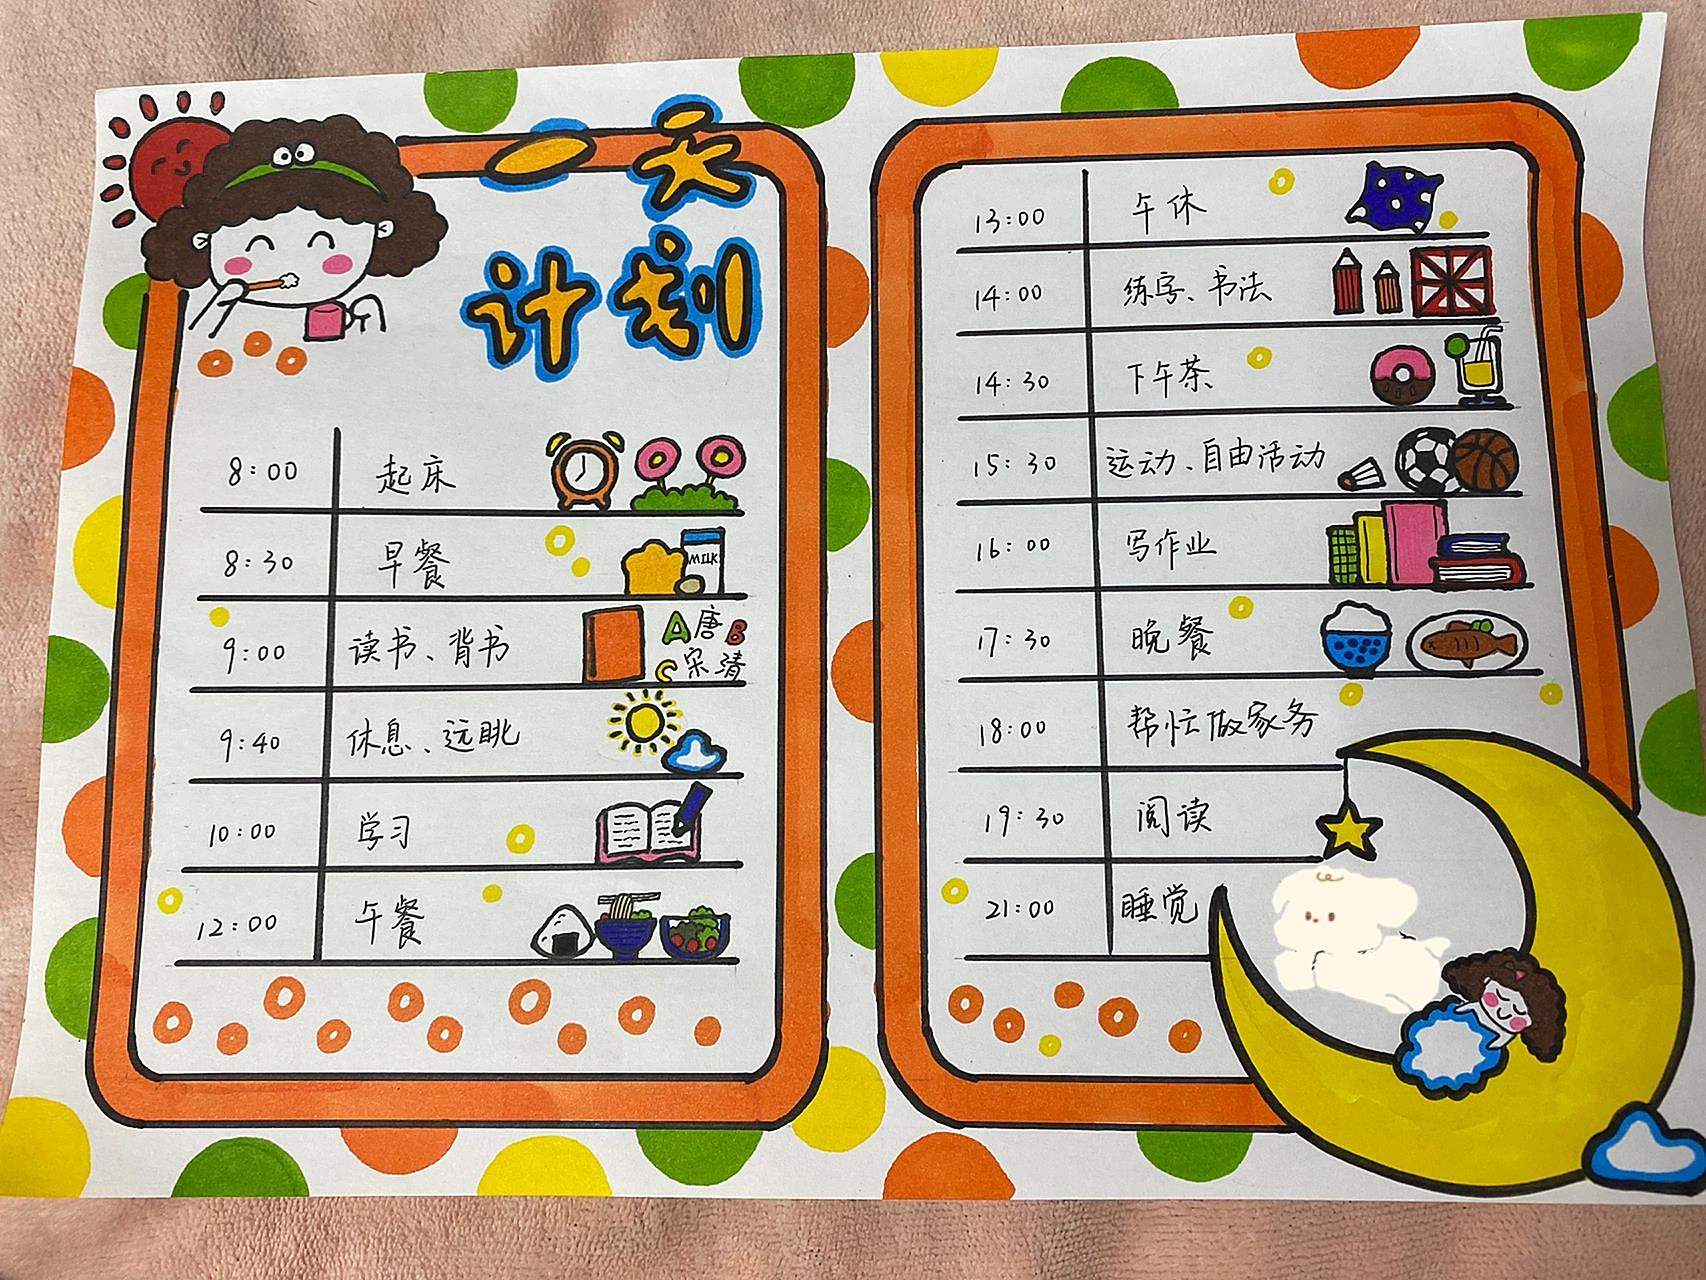 一天
计划
8:00 起床
8:30 早餐
MILK
9:00 读书、背书
A唐B
C宋清
9:40 休息、远眺
10:00 学习
12:00 午餐
13:00 午休
14:00 练字、书法
14:30 下午茶
15:30 运动、自由活动
16:00 写作业
17:30 晚餐
18:00 帮忙做家务
19:30 阅读
21:00 睡觉